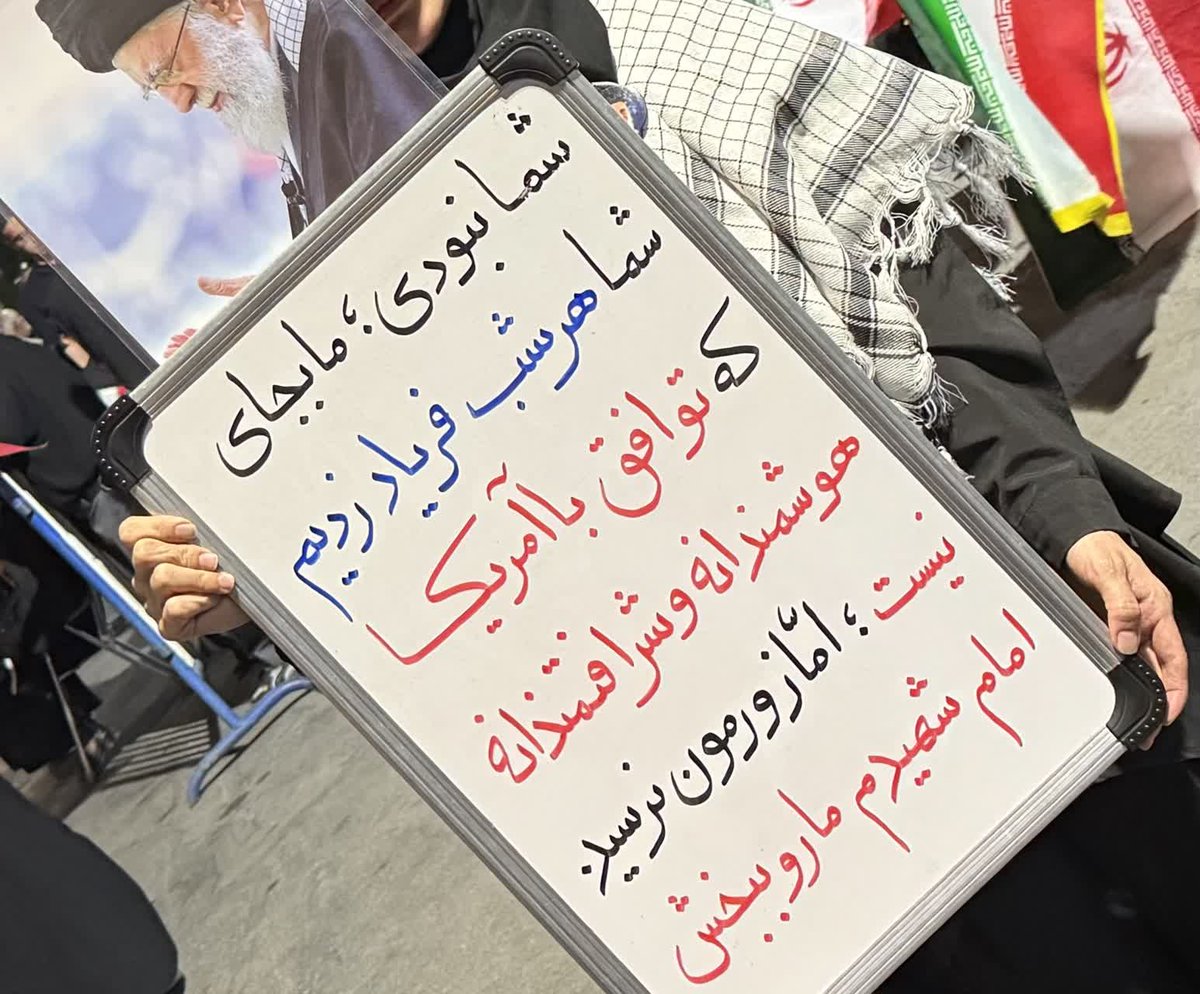 شما نبودی؛ ما بجای
شما هر شب فریاد زدیم
که توافق با آمریکا
هوشمندانه و شرافتمندانه
نیست؛ امّا زورمون نرسید
امام شهیدم ما رو ببخش